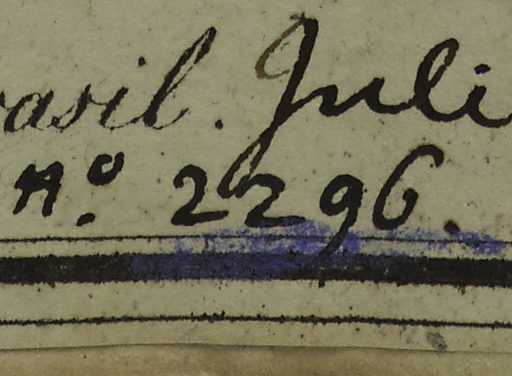 rasil. Juli
No. 2296.